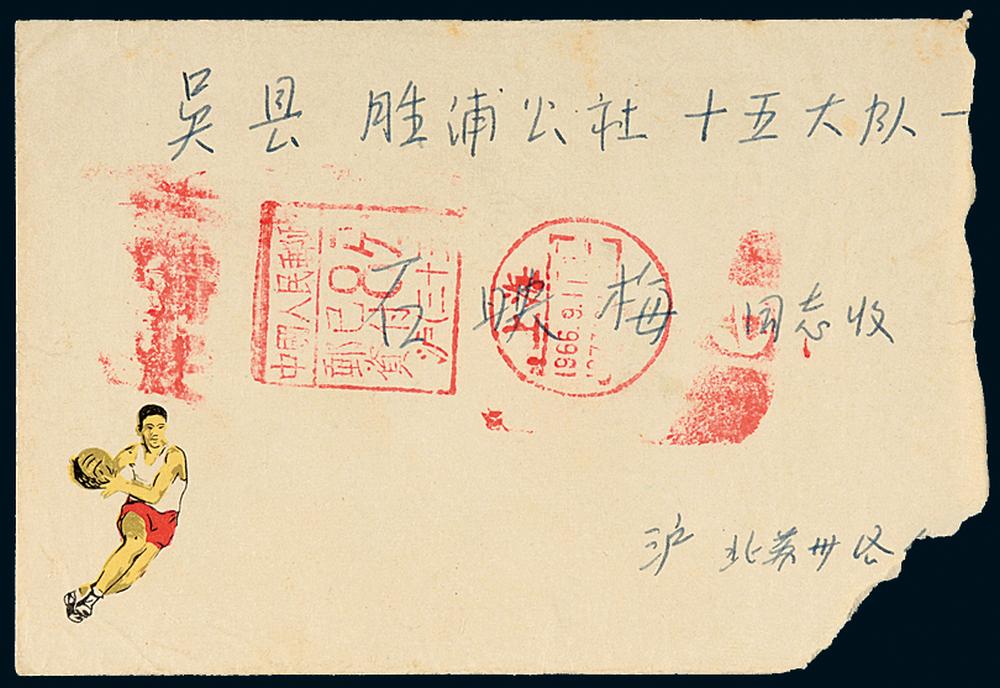 吴县 胜浦公社 十五大队一
中国人民邮
邮已8分
资付
沪
上海
1966.9.11
伍映梅 同志收
沪 北苏州路